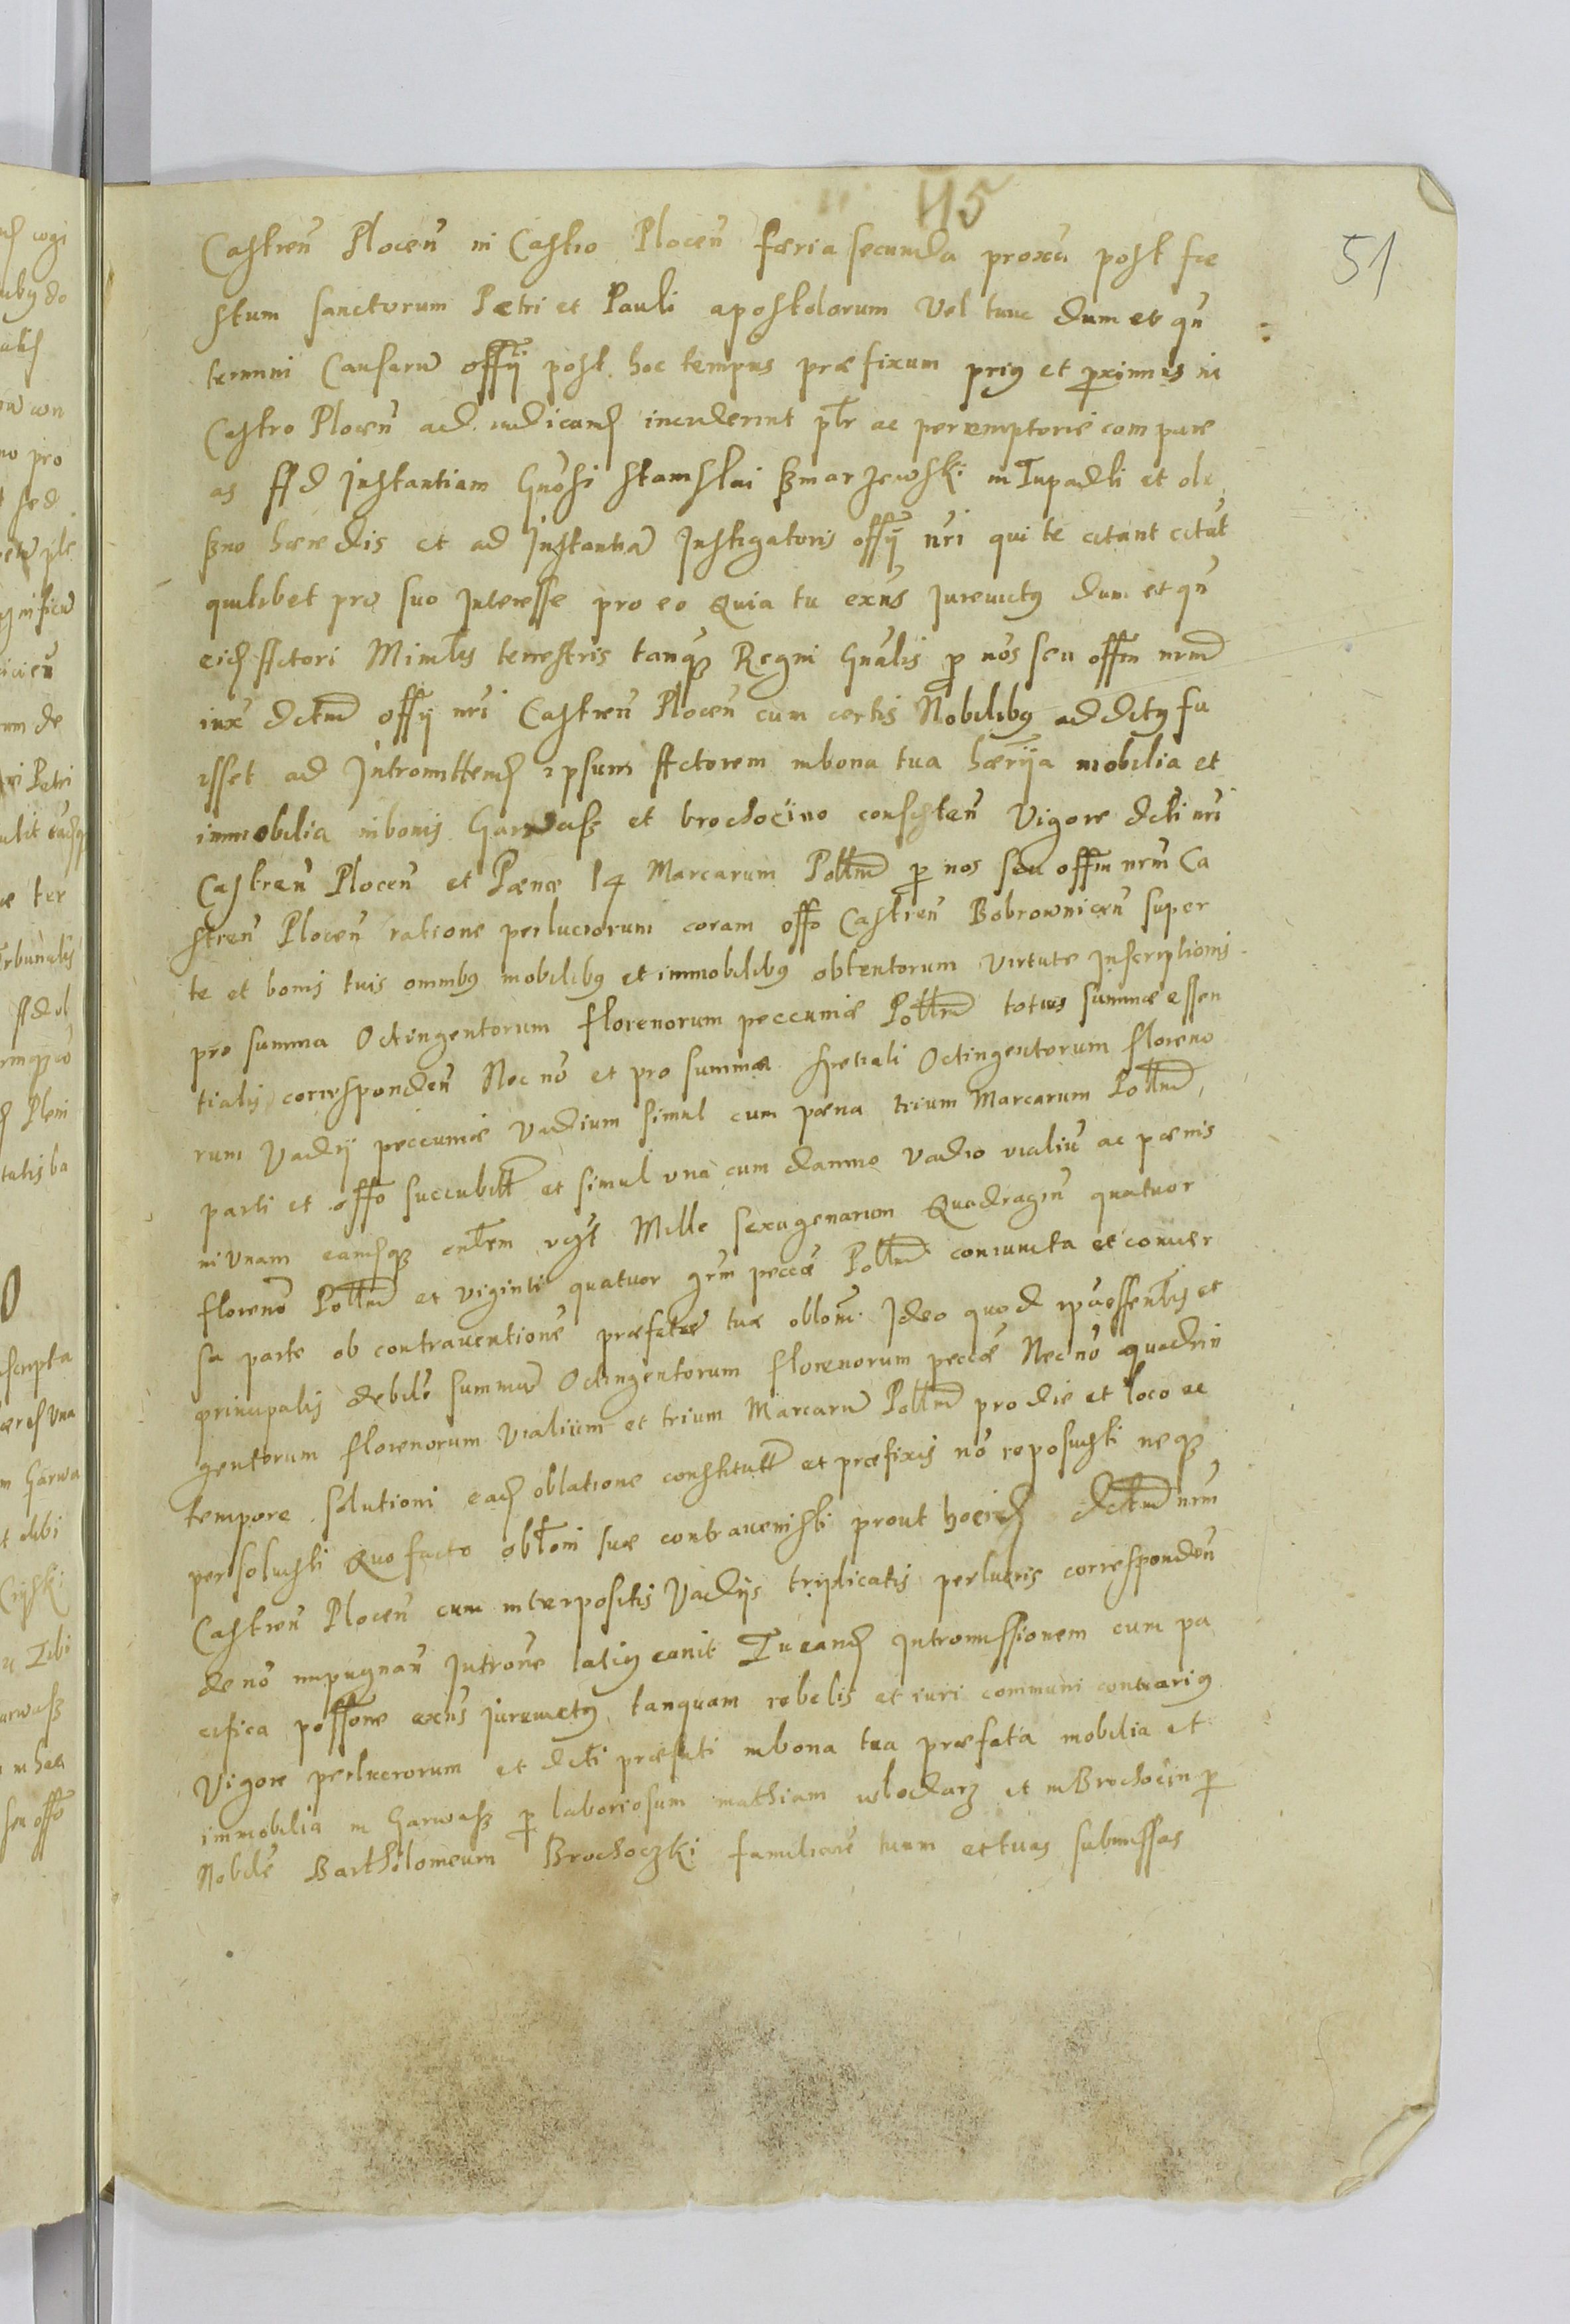 45
51
Castren̄ Plocen̄ in Castro Plocen̄ faeria secunda proxā post fae
stum sanctorum Petri et Pauli apostolorum Vel tunc dum et qn̄
termini Causarū offii post hoc tempus praefixum priꝯ et proximius in
Castro Plocen̄ ad iudicand inciderint ꝑlr ac peremptorie compare
as Ad Instantiam Gn̄osi Stanislai Szmarzewski in Tupadli et ole
szno haeredis et ad Instantiā Instigatoris offii nr̄i qui te citant citat
quilibet pro suo Interesse pro eo Quia tu exn̄s Iurevictꝯ dum et qn̄
eid Actori Minlis terrestris tanqꝫ Regni Gnālis ꝑ nos seu offm nrm̄
iux̄ dctm̄ offii nr̄i Castren̄ Plocen̄ cum certis Nobilibꝯ additꝯ fu
isset ad Intromittend ipsum Actorem in bona tua haer̄iia mobilia et
immobilia in bonis Garwasz et brochocino consisten̄ Vigore dcti nr̄i
Castren̄ Plocen̄ et Paenae 14 Marcarum Pollm̄ ꝑ nos seu offm nrm̄ Ca
stren̄ Plocen̄ ratione perlucrorum coram offo Castren̄ Bobrownicen̄ super
te et bonis tuis omnibꝯ mobilibꝯ et immobilibꝯ obtentorum virtute Inscriptionis
pro summa Octingentorum florenorum peccuniae Pollm̄ totius summae essen
tialis corresponden̄ Nec nō et pro summa spetiali Octingentorum floreno
rum Vadii peccuniae Vadium simul cum paena trium Marcarum Pollm̄,
parti et offo succubitt et simul una cum damno Vadio vialiū ac paenis
in Unam eandqꝫ cnlem Mille sexagenarum Quadragin̄ quatuor
florenō Pollm̄ et viginti quatuor grm̄ peccāe Pollm̄ coniuncta et conver
sa parte ob contraventionē praefatae tuae oblom̄. Ideo quod ipā essenlis et
principalis debilē summā Octingentorum florenorum peccāe Nec nō quadrin
gentorum florenorum Vialium et trium Marcarū Pollm̄ pro die et loco ac
tempore solutioni ead oblatione constitutt et praefixis nō reposuisti neqꝫ
persoluisti Quo facto obloni suae contravenisti prout hoc id dctm̄ nrm̄
Castren̄ Plocen̄ cum interpositis Vadiis triplicatis perlucris corresponden̄
de nō impugnan̄ Introne latiꝯ canit Tu eand Intromissionem cum pa
cifica possone exn̄s Iurevictꝯ tanquam rebelis et iuri communi contrariꝯ
Vigore perlucrorum et dcti praefati in bona tua praefata mobilia et
immobilia in Garwasz ꝑ laboriosum mathiam wlodarz et in Brochocin ꝑ
Nobilē Bartholomeum Brochoczki familiarē tuum et tuas submissas